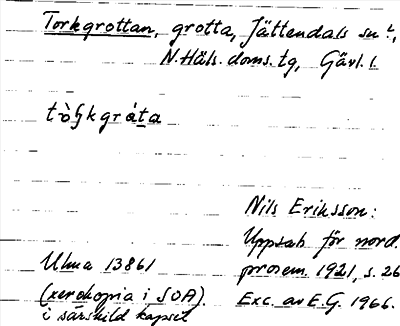 Torkgrottan, grotta, Jättendals sn,
N. Häls. doms. tg, Gävl. l.
tòŗkgráta
Nils Eriksson:
Uppsats för nord.
prosem. 1921, s. 26
Ulma 13861
(xerokopia i SOA).
i särskild kapsel
Exc. av E.G. 1966.